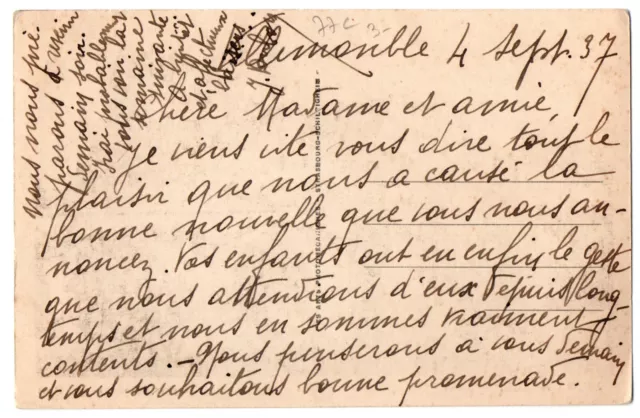 4 Sept. 37
Chère Madame et amie,
Je viens vite vous dire tout le
plaisir que nous a causé la
bonne nouvelle que vous nous an-
noncez. Vos enfants ont eu enfin le geste
que nous attendions d'eux depuis long-
temps et nous en sommes vraiment
contents. - Nous penserons à vous demain
et vous souhaitons bonne promenade.
Nous nous pré-
parons à venir
demain soir.
J'irai probablement
vous voir la
semaine
suivante
A bientôt
et affectueux
77c 3-
STRASBOURG-SCHILTIGHEIM